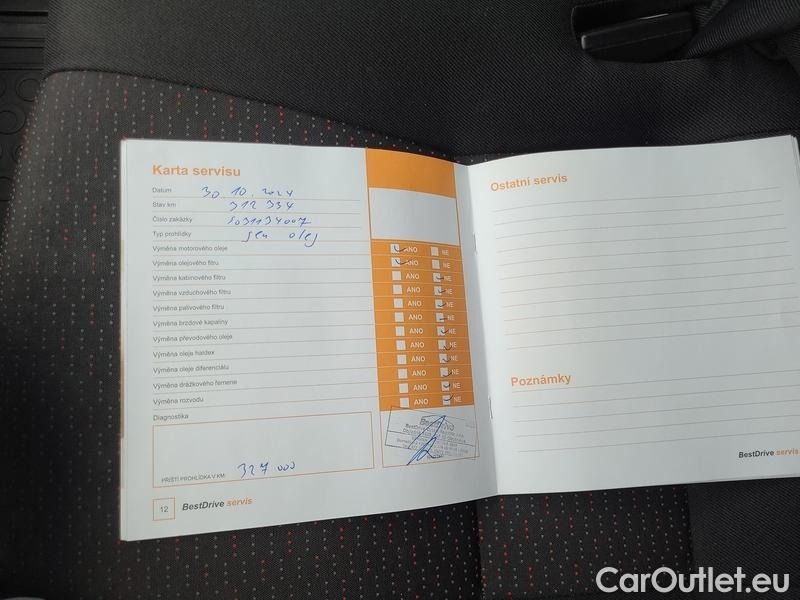 Karta servisu
Datum 30.10.2024
Stav km 312 334
Číslo zakázky 5031134007
Typ prohlídky jen olej
Výměna motorového oleje ANO NE
Výměna olejového filtru ANO NE
Výměna kabinového filtru ANO NE
Výměna vzduchového filtru ANO NE
Výměna palivového filtru ANO NE
Výměna brzdové kapaliny ANO NE
Výměna převodového oleje ANO NE
Výměna oleje haldex ANO NE
Výměna oleje diferenciálu ANO NE
Výměna drážkového řemene ANO NE
Výměna rozvodu ANO NE
Diagnostika
BestDrive
PŘÍŠTÍ PROHLÍDKA V KM: 327 000
12 BestDrive servis
Ostatní servis
Poznámky
BestDrive servis
CarOutlet.eu